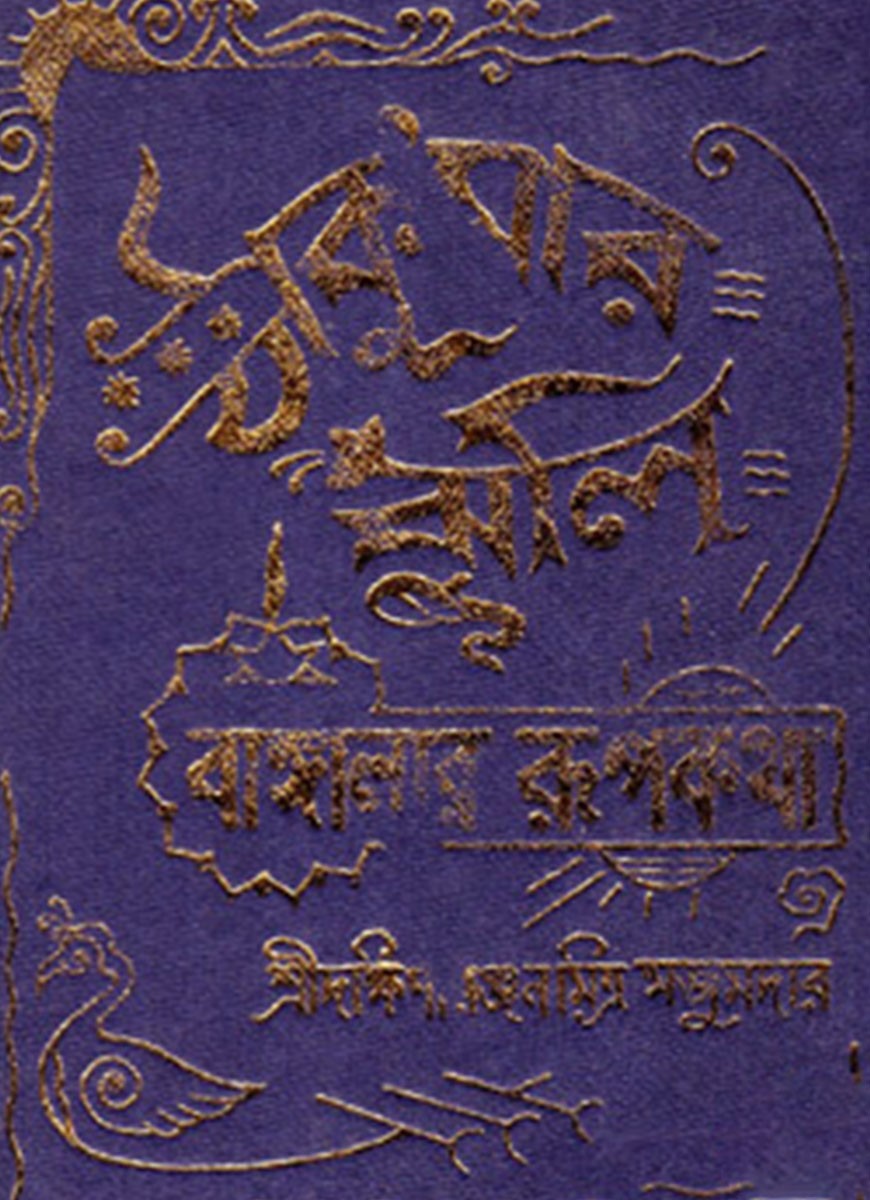 ঠাকুরমার
ঝুলি
বাঙ্গালার রূপকথা
শ্রীদক্ষিণারঞ্জন মিত্র মজুমদার